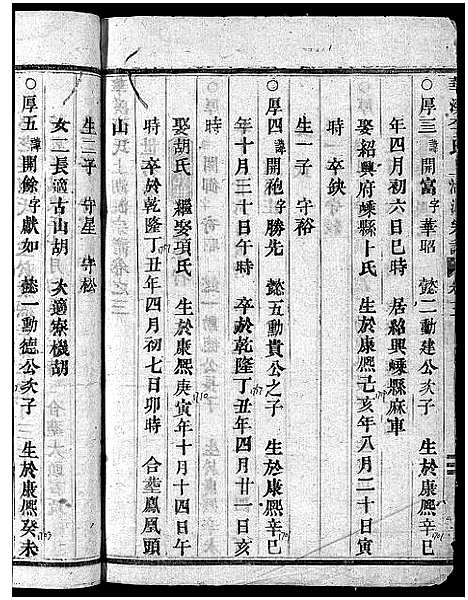 ○厚三 諱開富字華昭 懿二動建公次子 生於康熙辛巳
1701
年四月初六日巳時 居紹興嵊縣麻車
娶紹興府嵊縣卜氏 生於康熙己亥年八月二十日寅
時 卒缺
生一子 守裕
○厚四 諱開袍字勝先 懿五動貴公之子 生於康熙辛巳
1701
年十月三十日午時 卒於乾隆丁丑年四月廿一日亥
1757
時
娶胡氏 繼娶項氏 生於康熙庚寅年十月十四日午
1710
時 卒於乾隆丁丑年四月初七日卯時 合塟鳳凰頭
1757
山
生二子 守星 守松
女二長適古山胡 次適寮機胡
○厚五 諱開餘字獻如 懿一動德公次子 生於康熙癸未
1703